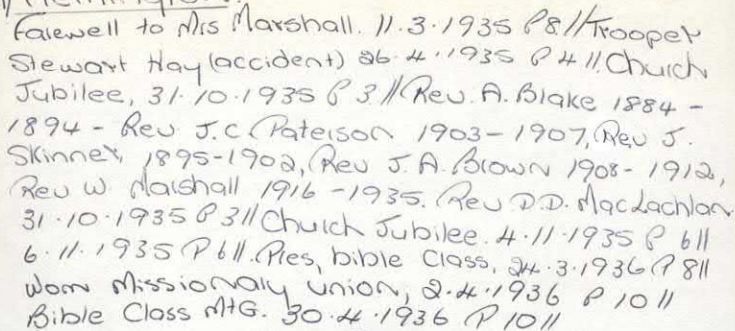 Farewell to Mrs Marshall. 11.3.1935 P8//Trooper
Stewart Hay (accident) 26.4.1935 P4//Church
Jubilee, 31.10.1935 P3//Rev. A. Blake 1884 -
1894 - Rev J.C. Paterson 1903-1907, Rev J.
Skinner, 1895-1902, Rev J.A. Brown 1908-1912,
Rev W. Marshall 1916-1935. Rev D.D. MacLachlan
31.10.1935 P3//Church Jubilee. 4.11.1935 P6//
6.11.1935 P6//. Pres, bible Class, 24.3.1936 P8//
Wom Missionary Union, 2.4.1936 P10//
Bible Class MtG. 30.4.1936 P10//